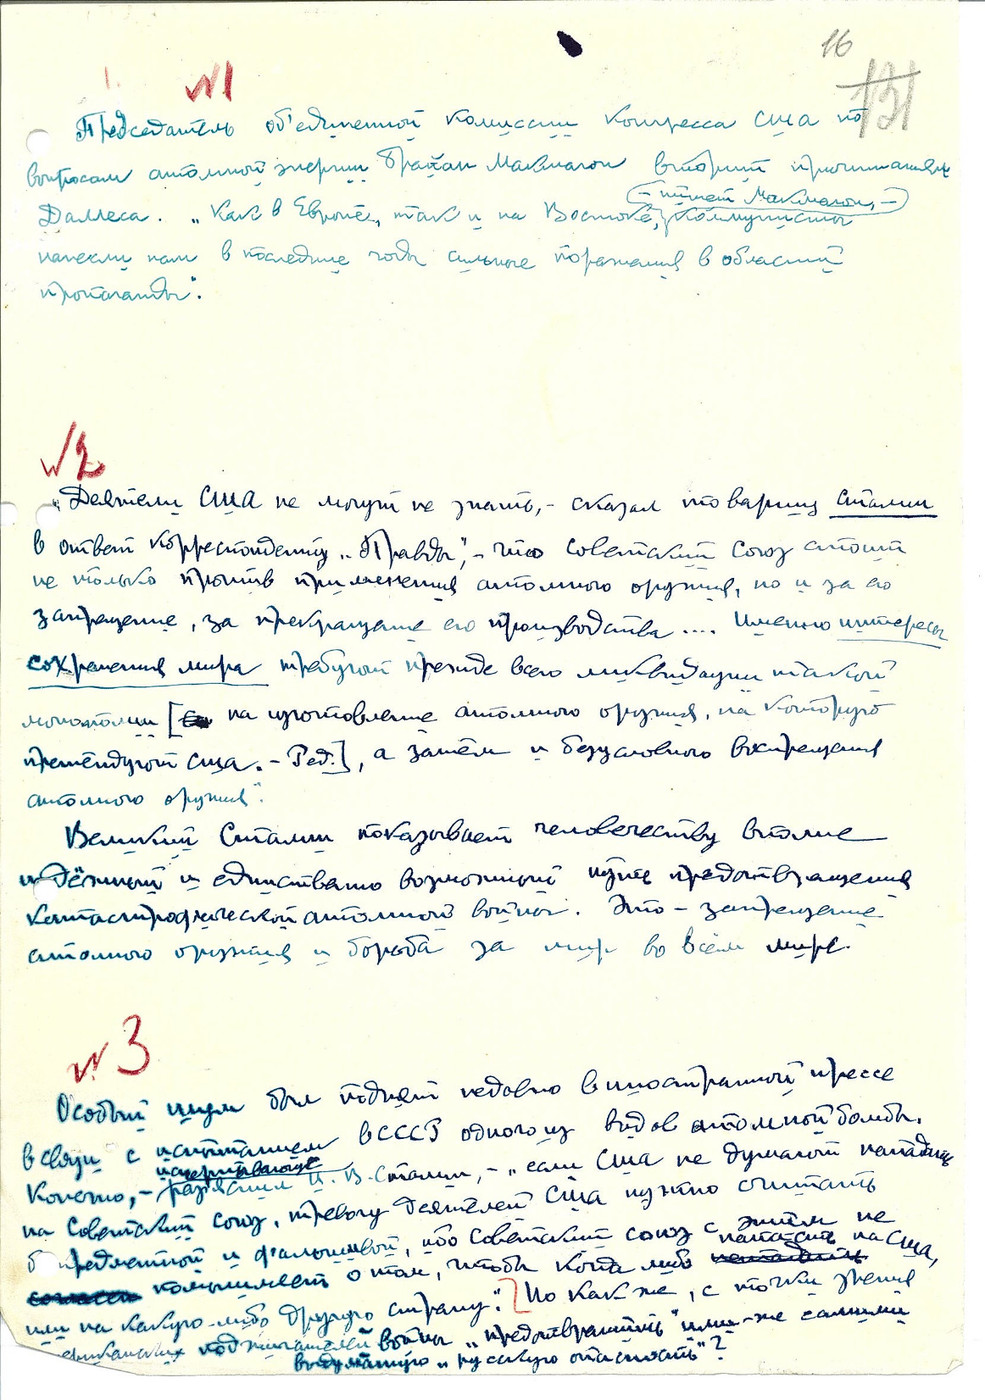 16
131
№1
Председатель об'единенной комиссии конгресса США по
вопросам атомной энергии Брайан Макмагон вторит причитаниям
— пишет Макмагон, —
Даллеса. „Как в Европе, так и на Востоке, коммунисты
нанесли нам в последние годы сильные поражения в области
пропаганды".
№2
„Деятели США не могут не знать, - сказал товарищ Сталин
в ответ корреспонденту „Правды", - что Советский Союз стоит
не только против применения атомного оружия, но и за его
запрещение, за прекращение его производства .... Именно интересы
сохранения мира требуют прежде всего ликвидации такой
монополии [на изготовление атомного оружия, на которую
претендуют США. - Ред.], а затем и безусловного воспрещения
атомного оружия".
Великий Сталин показывает человечеству вполне
и единственно возможный путь предотвращения
катастрофической атомной войны. Это - запрещение
атомного оружия и борьба за мир во всём мире.
№3
Особый шум был поднят недавно в иностранной прессе
в связи с испытанием в СССР одного из видов атомной бомбы.
исчерпывающе
Конечно, - раз'яснил И. В. Сталин, - „если США не думают нападать
на Советский Союз, тревогу деятелей США нужно считать
беспредметной и фальшивой, ибо Советский Союз с этим не
помышляет о том, чтобы когда-либо напасть на США,
или на какую-либо другую страну". Но как же, с точки зрения
поджигателей войны „предотвратить" ими-же самими
выдуманную „русскую опасность"?